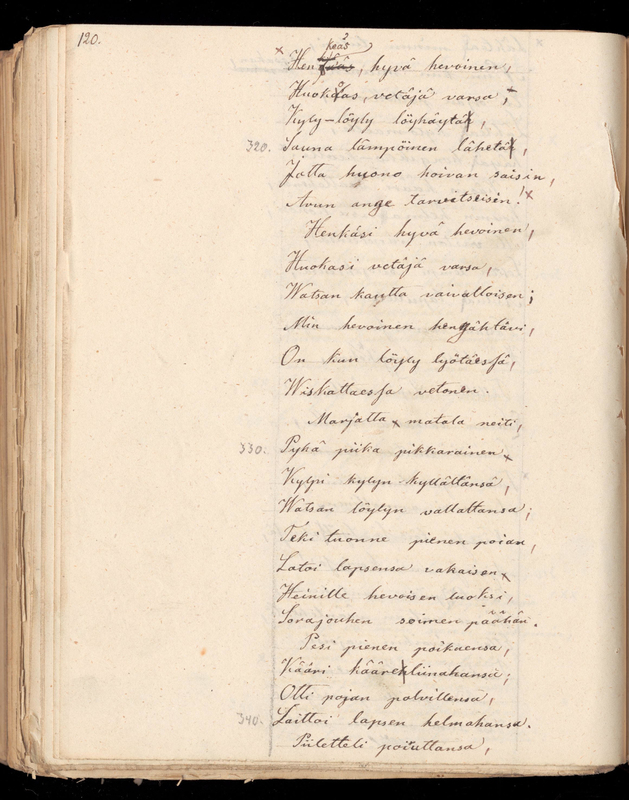 120.
Henkeäs, hyvä hevoinen,
Huokoas, vetäjä varsa,
Kyly-löyly löyhäytä,
320. Sauna lämpöinen lähetä,
Jotta huono hoivan saisin,
Avun ange tarvitseisin!
Henkäsi hyvä hevoinen,
Huokasi vetäjä varsa,
Watsan kautta vaivalloisen;
Min hevoinen hengähtävi,
On kun löyly lyötäessä,
Wiskattaessa vetonen.
Marjatta matala neiti,
330. Pyhä piika pikkarainen
Kylpi kylyn kyllältänsä,
Watsan löylyn vallaltansa;
Teki tuonne pienen poian,
Latoi lapsensa vakaisen
Heinille hevoisen luoksi,
Sorajouhen soimen päähän.
Pesi pienen poikaensa,
Kääri kääreliinahansa;
Otti pojan polvillensa,
340. Laittoi lapsen helmahansa.
Piiletteli poiuttansa,